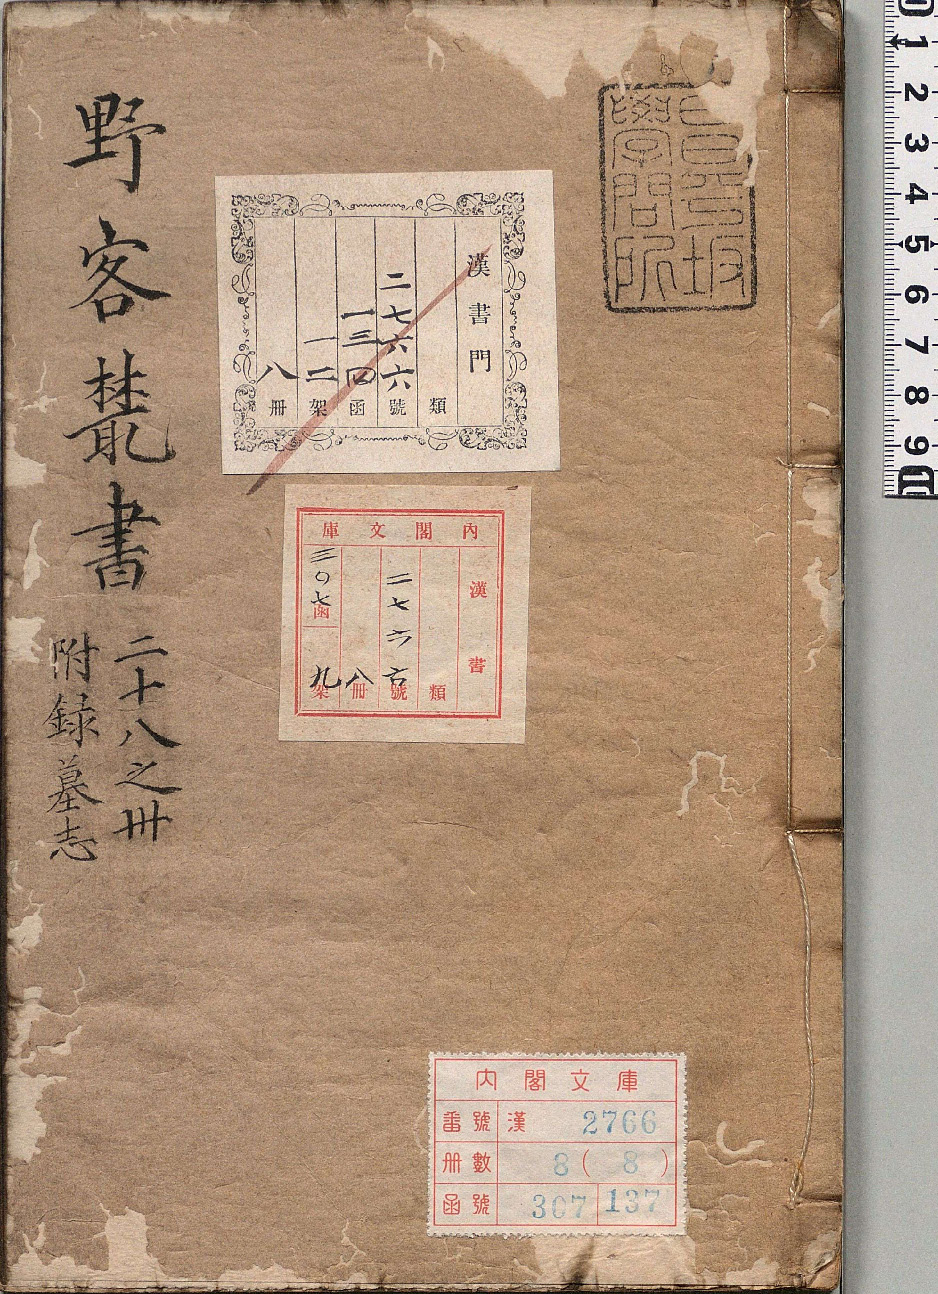 野客叢書
二十八之卅
附録墓志
昌平坂
學問所
漢書門
類
二七六六號
一三四函
一二架
八冊
內閣文庫
漢書
類
二七六六號
八冊
三〇七函
九架
內閣文庫
番號 漢 2766
冊數 8(8)
函號 307 137
0 1 2 3 4 5 6 7 8 9 10